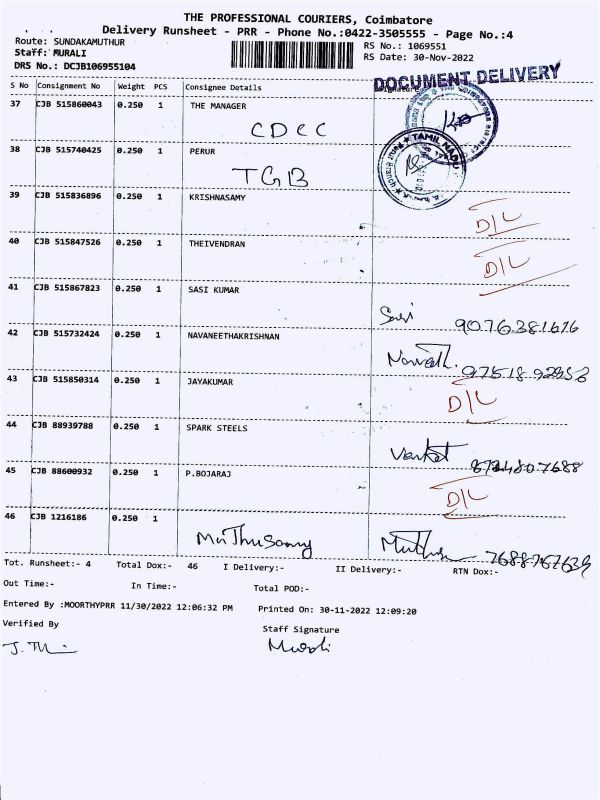 THE PROFESSIONAL COURIERS, Coimbatore
Delivery Runsheet - PRR - Phone No.:0422-3505555 - Page No.:4
Route: SUNDAKAMUTHUR
RS No.: 1069551
Staff: MURALI
RS Date: 30-Nov-2022
DRS No.: DCJB106955104
DOCUMENT DELIVERY
S No Consignment No Weight PCS Consignee Details Signature
37 CJB 515860043 0.250 1 THE MANAGER
CDCC
38 CJB 515740425 0.250 1 PERUR
TGB
TAMIL NADU
39 CJB 515836896 0.250 1 KRISHNASAMY
D/L
40 CJB 515847526 0.250 1 THEIVENDRAN
D/L
41 CJB 515867823 0.250 1 SASI KUMAR
Sasi
42 CJB 515732424 0.250 1 NAVANEETHAKRISHNAN
43 CJB 515850314 0.250 1 JAYAKUMAR
D/L
44 CJB 88939788 0.250 1 SPARK STEELS
Venkat
45 CJB 88600932 0.250 1 P.BOJARAJ
D/L
46 CJB 1216186 0.250 1
MuThuSamy 7688767639
Tot. Runsheet:- 4 Total Dox:- 46 I Delivery:- II Delivery:- RTN Dox:-
Out Time:- In Time:- Total POD:-
Entered By :MOORTHYPRR 11/30/2022 12:06:32 PM Printed On: 30-11-2022 12:09:20
Verified By Staff Signature
Murali